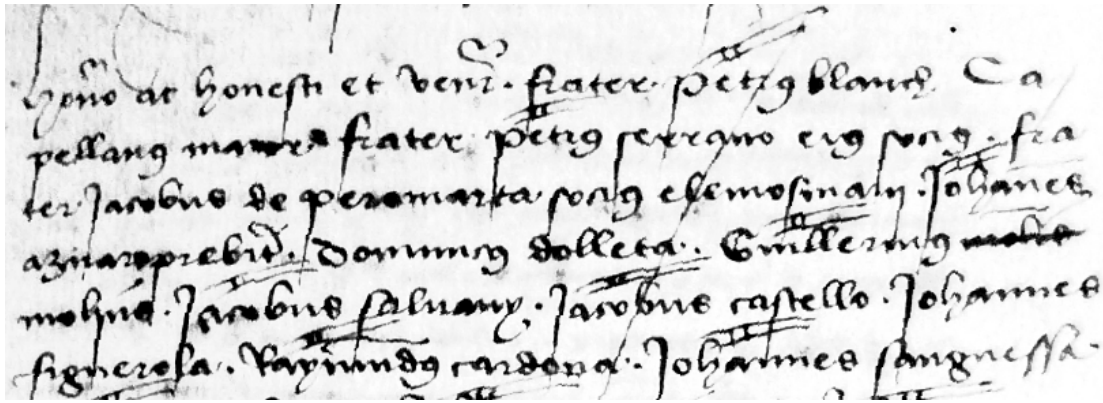 honesti et venr. frater. Petrus blanch Ca
pellanus maior frater. Petrus serrano eius socius. fra
ter. Jacobus de peramarta. socius elemosinarii. Johannes
aznar prebit. Dominicus dolleta. Guillermus
molins. Jacobus saluany. Jacobus castello. Johannes
figuerola. Raymundus cardona. Johannes sanguessa